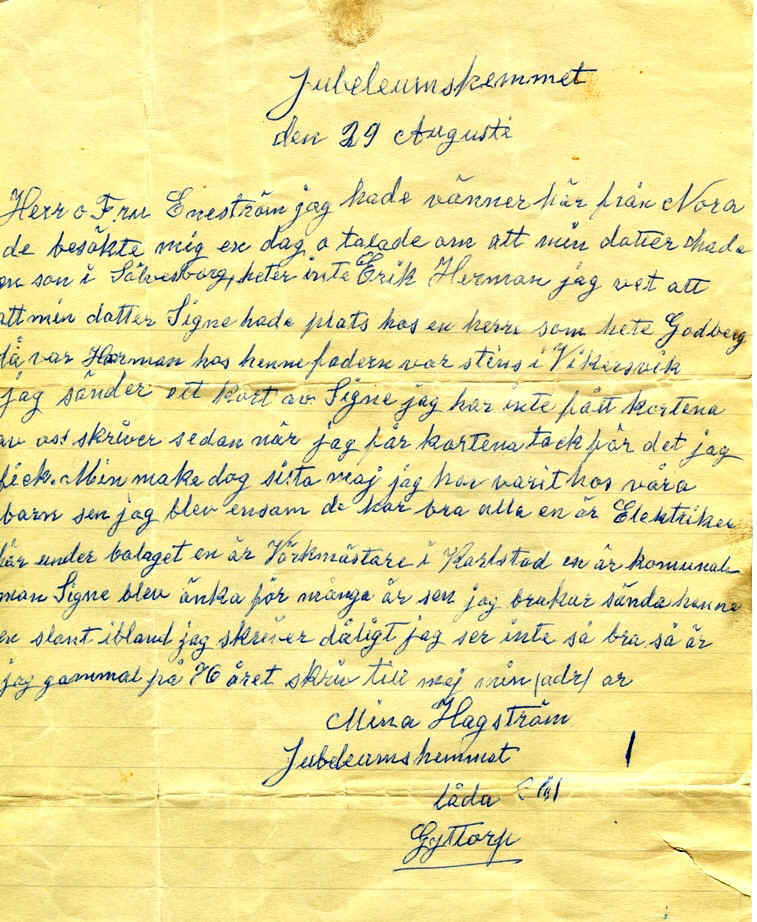 Jubeleumskemmet
den 29 Augusti
Herr o Fru Eneström jag hade vänner här från Nora
de besökte mig en dag o talade om att min datter hade
en son i Sölvesborg, heter inte Erik Herman jag vet att
att min datter Signe hade plats hos en herre som hete Godberg
då var Herman hos henne fadern var stins i Vikersvik
jag sänder ett kort av Signe jag har inte fått kortena
av oss skriver sedan när jag får kortena tack för det jag
fick. Min make dog sista maj jag har varit hos våra
barn sen jag blev ensam de har bra alla en är Elektriker
här under bolaget en är Värkmästare i Karlstad en är komunal
man Signe blev änka för många år sen jag brukar sända henne
en slant ibland jag skriver dåligt jag ser inte så bra så är
jag gammal på 76 året skriv till mej min (adr) ar
Mina Hagström
Jubeleumshemmet
låda
Gyttorp